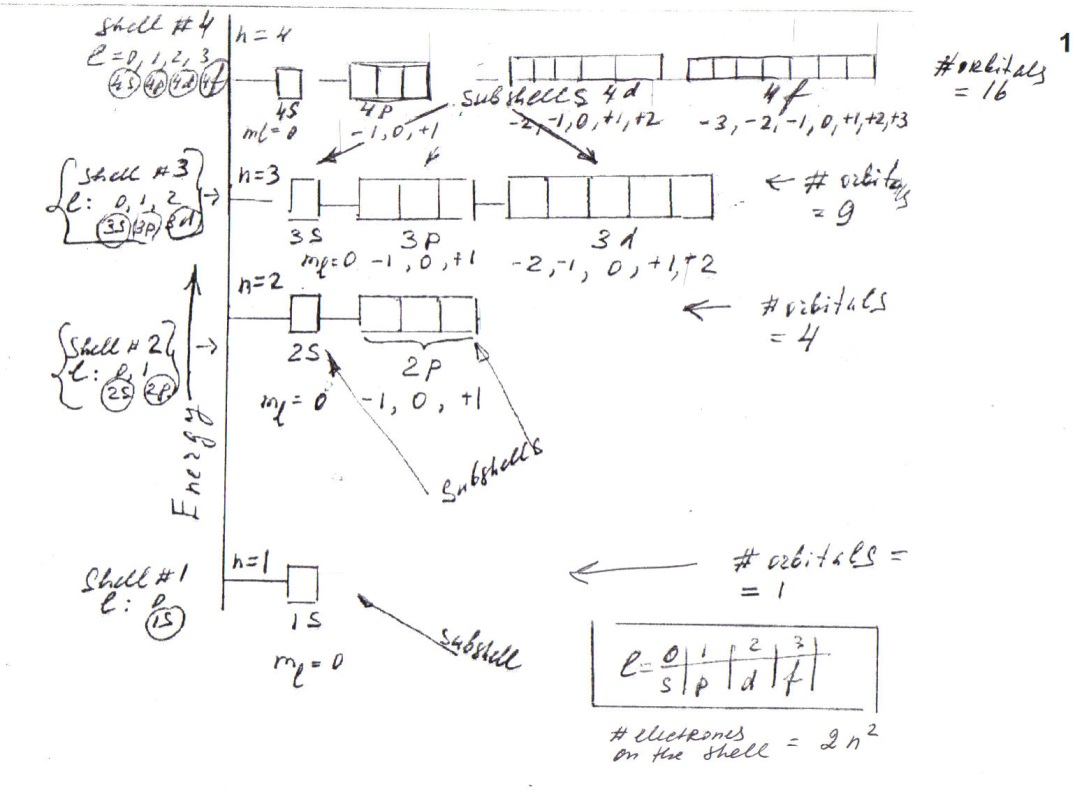 1
Shell #4
ℓ=0, 1, 2, 3
4s 4p 4d 4f
n=4
4s
4p
subshells
4d
4f
mℓ=0
-1, 0, +1
-2, -1, 0, +1, +2
-3, -2, -1, 0, +1, +2, +3
#orbitals
= 16
Shell #3
ℓ: 0, 1, 2
3s 3p 3d
n=3
3s
3p
3d
mℓ=0 -1, 0, +1
-2, -1, 0, +1, +2
# orbitals
= 9
n=2
Shell #2
ℓ: 0, 1
2s 2p
2s
2p
mℓ=0
-1, 0, +1
# orbitals
= 4
Energy
Subshells
n=1
Shell #1
ℓ: 0
1s
1s
mℓ=0
subshell
# orbitals =
= 1
ℓ= 0 | 1 | 2 | 3 |
s | p | d | f |
# electrones
on the shell = 2n²